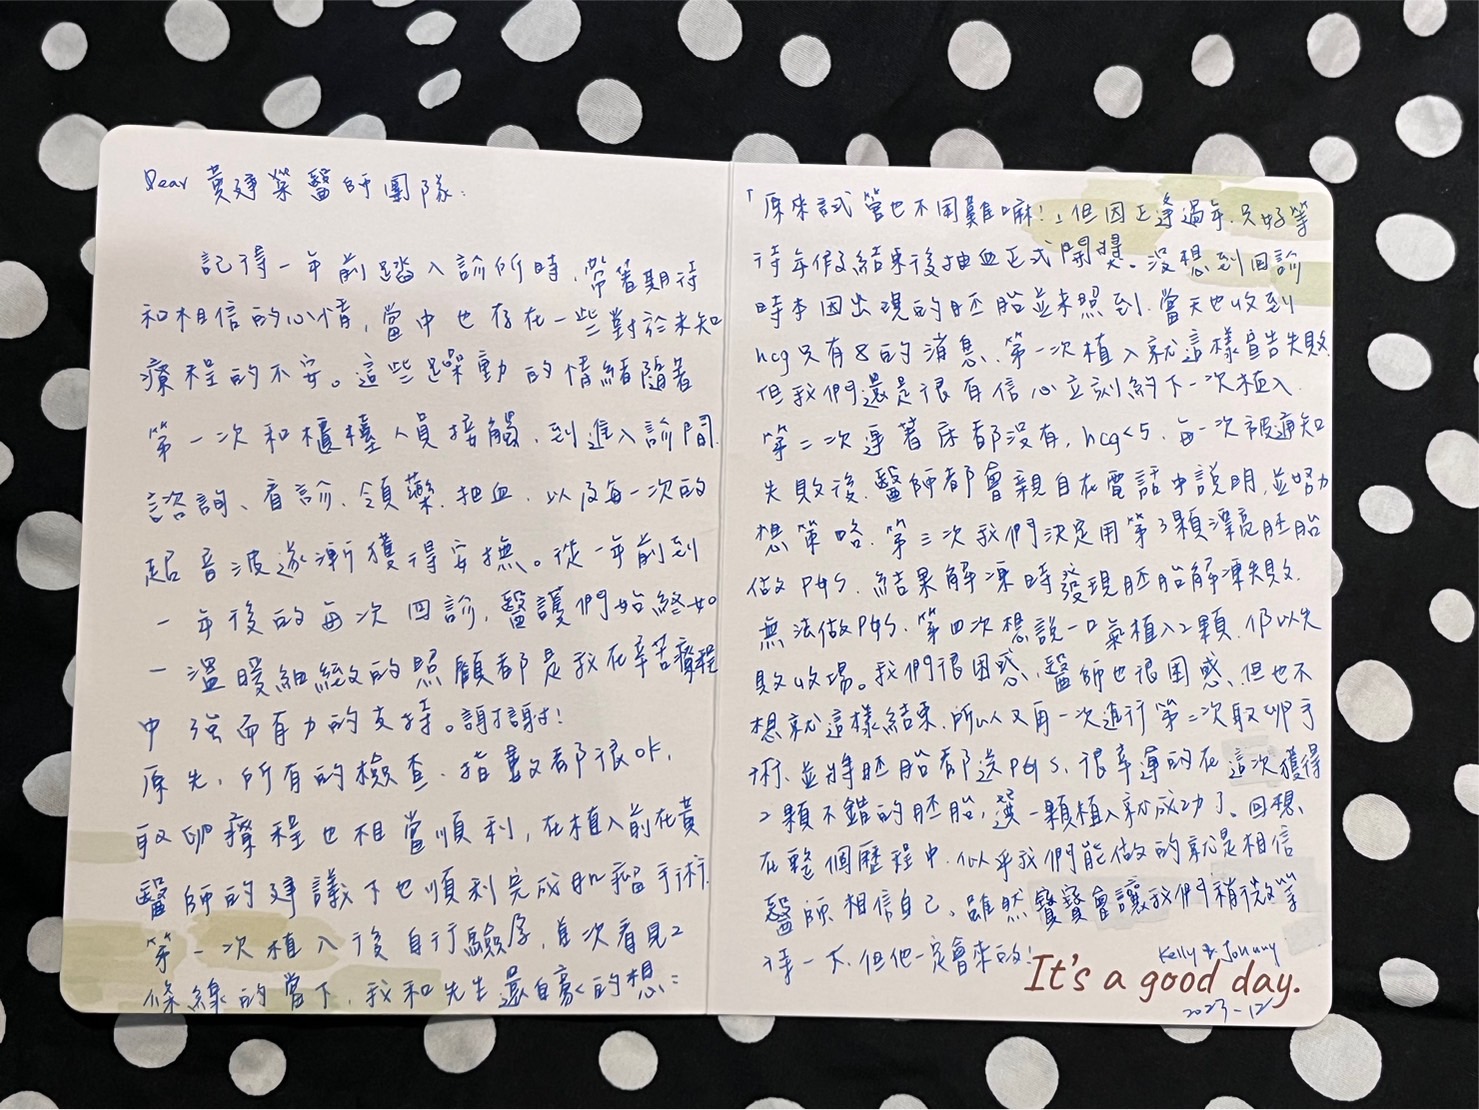 Dear 黃建榮醫師團隊:
記得一年前踏入診所時,帶著期待
和相信的心情,當中也存在一些對於未知
療程的不安。這些躁動的情緒隨著
第一次和櫃檯人員接觸、到進入診間
諮詢、看診、領藥、抽血、以及每一次的
超音波逐漸獲得安撫。從一年前到
一年後的每次回診,醫護們始終如
一溫暖細緻的照顧都是我在辛苦療程
中強而有力的支持。謝謝!
原先,所有的檢查、指數都很OK,
取卵療程也相當順利,在植入前在黃
醫師的建議下也順利完成肌瘤手術,
第一次植入後自行驗孕,首次看見2
條線的當下,我和先生還自豪的想:
「原來試管也不困難嘛!」但因正逢過年,只好等
待年假結束後抽血正式開獎。沒想到回診
時本因出現的胚胎並未照到,當天也收到
hcg只有8的消息、第一次植入就這樣宣告失敗,
但我們還是很有信心立刻約下一次植入。
第二次連著床都沒有,hcg<5,每一次被通知
失敗後,醫師都會親自在電話中說明,並努力
想策略,第三次我們決定用第3顆漂亮胚胎
做PGS,結果解凍時發現胚胎解凍失敗,
無法做PGS,第四次想說一口氣植入2顆,仍以失
敗收場。我們很困惑、醫師也很困惑、但也不
想就這樣結束,所以又再一次進行第二次取卵手
術、並將胚胎都送PGS、很幸運的在這次獲得
2顆不錯的胚胎,選一顆植入就成功了。回想、
在整個歷程中,似乎我們能做的就是相信
醫師、相信自己。雖然寶寶會讓我們稍微等
待一下,但他一定會來的!
Kelly & Johnny
It's a good day.
2023-12